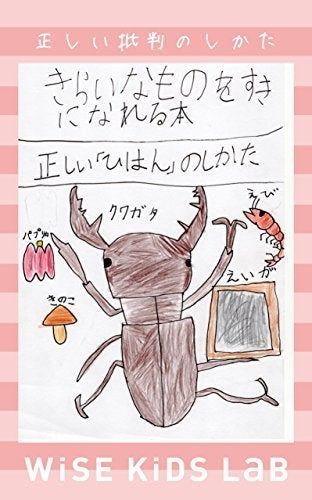 正しい批判のしかた
きらいなものをすき
になれる本
正しい「ひはん」のしかた
クワガタ
えび
パプリカ
えいが
きのこ
WiSE KiDS LaB